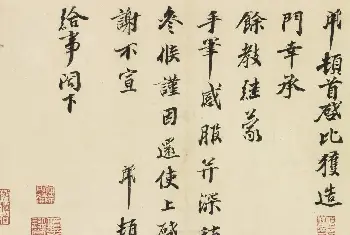 頓首啟比獲造
門幸承
餘教繼蒙
手筆感服并深
冬候謹因還使上啟
謝不宣 頓
給事閣下